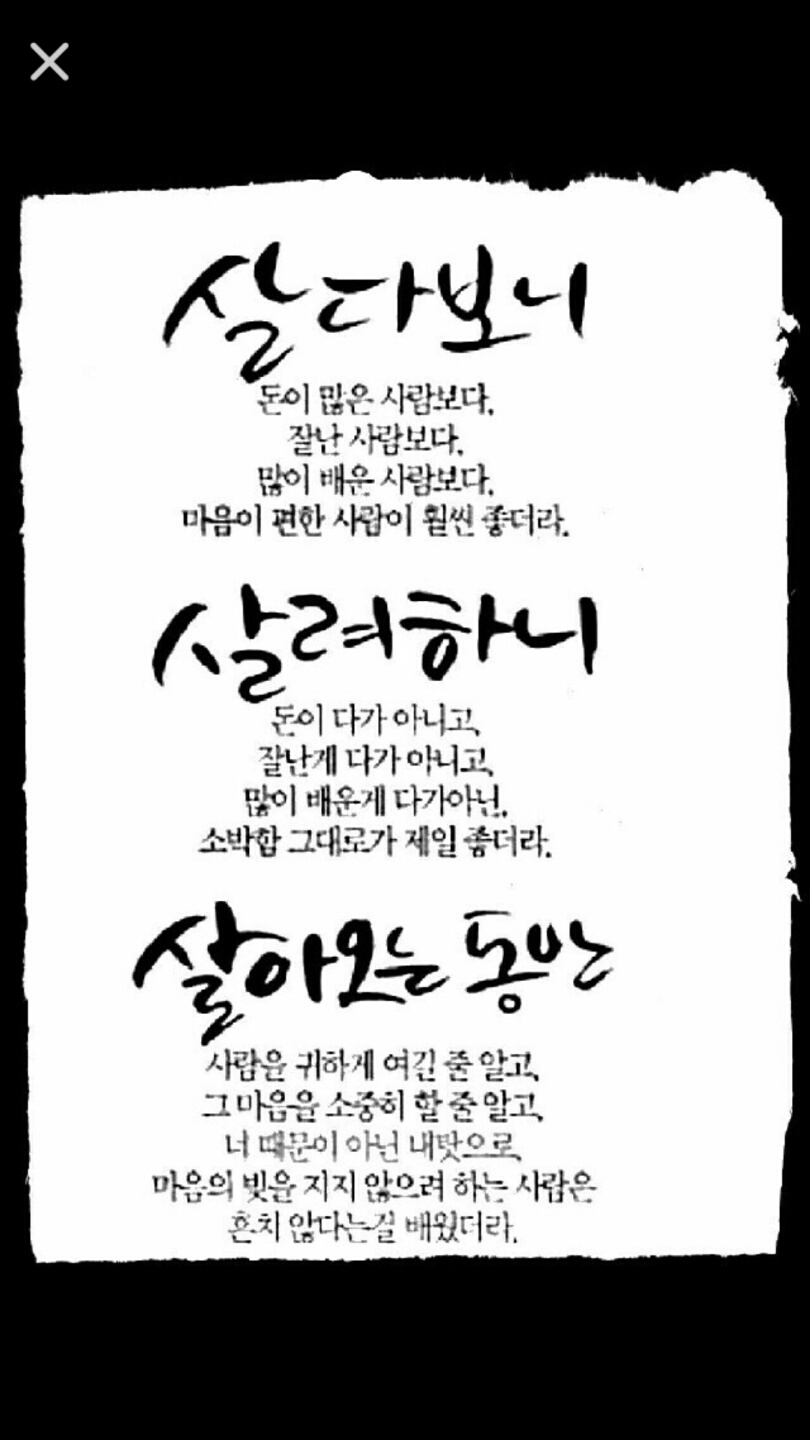 살다보니
돈이 많은 사람보다,
잘난 사람보다,
많이 배운 사람보다,
마음이 편한 사람이 훨씬 좋더라.
살려하니
돈이 다가 아니고,
잘난게 다가 아니고,
많이 배운게 다가아닌,
소박함 그대로가 제일 좋더라.
살아오는 동안
사람을 귀하게 여긴 줄 알고,
그 마음을 소중히 할 줄 알고,
너 때문이 아닌 내탓으로,
마음의 빚을 지지 않으려 하는 사람은
흔치 않다는걸 배웠더라.